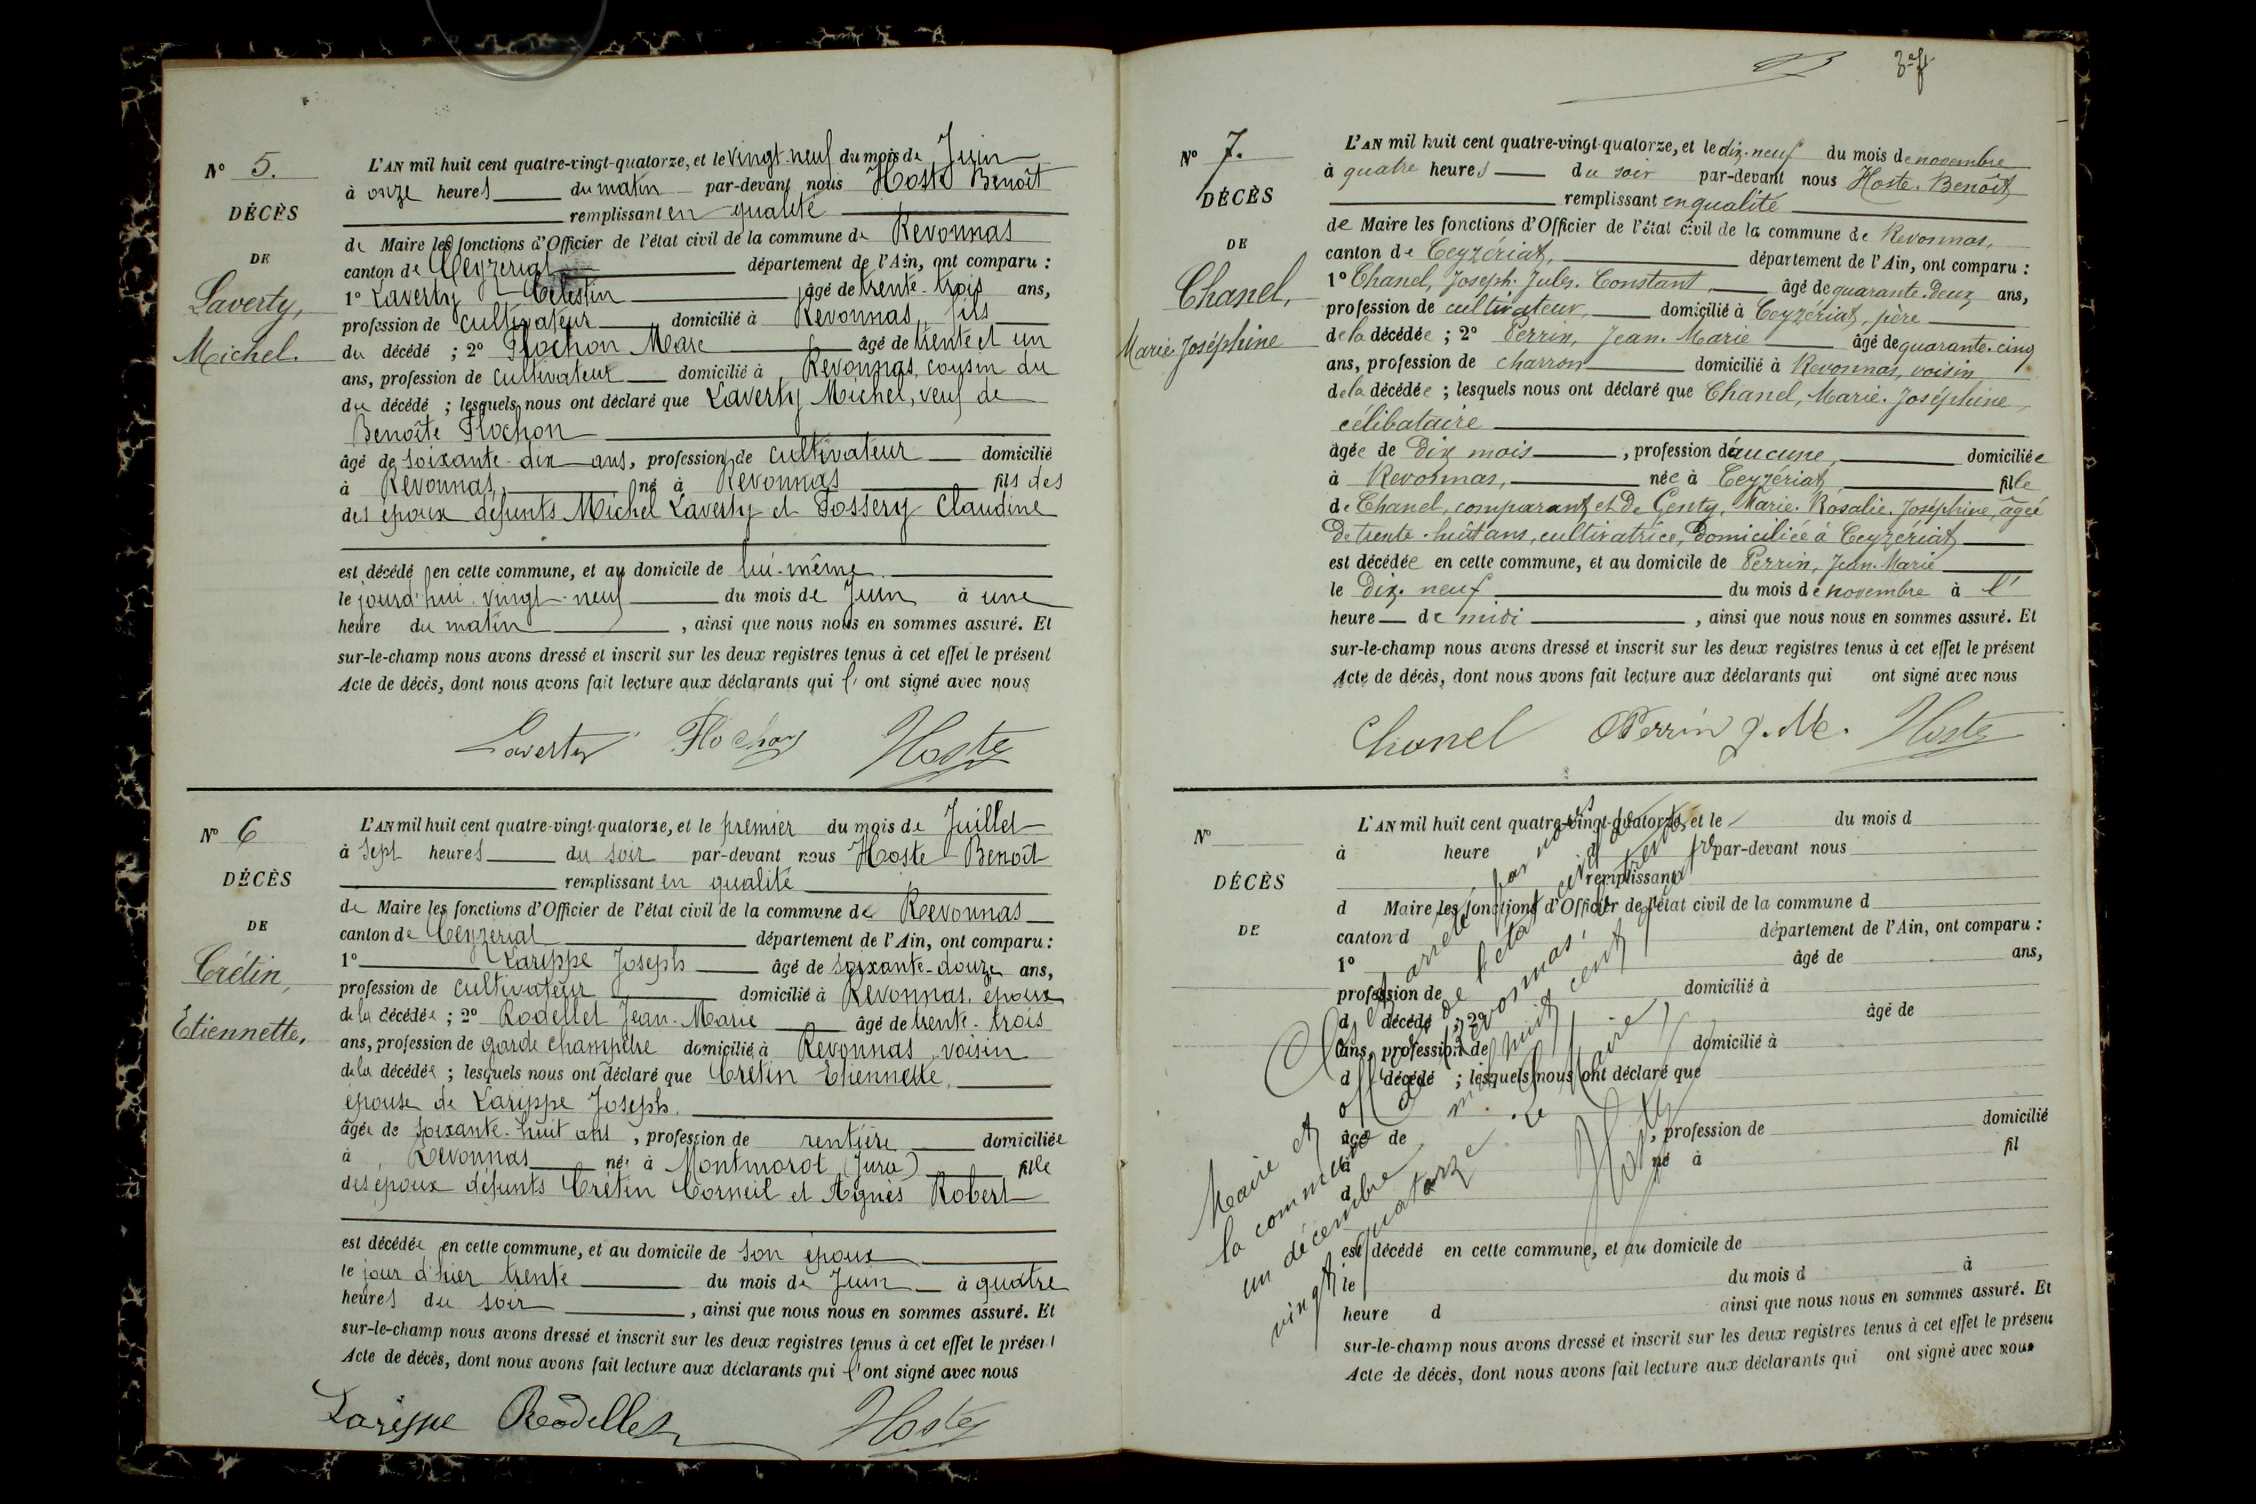 N° 5.
DÉCÈS
DE
Laverty,
Michel.
L'AN mil huit cent quatre-vingt-quatorze, et le vingt-neuf du mois de Juin
à onze heures du matin par-devant nous Hoste Benoît
remplissant en qualité
de Maire les fonctions d'Officier de l'état civil de la commune de Revonnas
canton de Ceyzériat département de l'Ain, ont comparu :
1° Laverty Célestin âgé de trente-trois ans,
profession de cultivateur domicilié à Revonnas, fils
du décédé ; 2° Flochon Marc âgé de trente et un
ans, profession de cultivateur domicilié à Revonnas, cousin du
du décédé ; lesquels nous ont déclaré que Laverty Michel, veuf de
Benoîte Flochon
âgé de soixante-dix ans, profession de cultivateur domicilié
à Revonnas, né à Revonnas fils des
des époux défunts Michel Laverty et Fossery Claudine
est décédé en cette commune, et au domicile de lui-même
le jourd'hui vingt-neuf du mois de Juin à une
heure du matin, ainsi que nous nous en sommes assuré. Et
sur-le-champ nous avons dressé et inscrit sur les deux registres tenus à cet effet le présent
Acte de décès, dont nous avons fait lecture aux déclarants qui l'ont signé avec nous
Laverty Flochon Hoste
N° 6
DÉCÈS
DE
Crétin,
Etiennette,
L'AN mil huit cent quatre-vingt-quatorze, et le premier du mois de Juillet
à sept heures du soir par-devant nous Hoste Benoît
remplissant en qualité
de Maire les fonctions d'Officier de l'état civil de la commune de Revonnas
canton de Ceyzériat département de l'Ain, ont comparu :
1° Larippe Joseph âgé de soixante-douze ans,
profession de cultivateur domicilié à Revonnas, époux
de la décédée ; 2° Rodellet Jean-Marie âgé de trente-trois
ans, profession de garde champêtre domicilié à Revonnas, voisin
de la décédée ; lesquels nous ont déclaré que Crétin Etiennette,
épouse de Larippe Joseph.
âgée de soixante-huit ans, profession de rentière domiciliée
à Revonnas née à Montmorot (Jura) fille
des époux défunts Crétin Corneil et Agnès Robert
est décédée en cette commune, et au domicile de son époux
le jour d'hier trente du mois de Juin à quatre
heures du soir, ainsi que nous nous en sommes assuré. Et
sur-le-champ nous avons dressé et inscrit sur les deux registres tenus à cet effet le présent
Acte de décès, dont nous avons fait lecture aux déclarants qui l'ont signé avec nous
Larippe Rodellet Hoste
N° 7.
DÉCÈS
DE
Chanel,
Marie-Joséphine
L'AN mil huit cent quatre-vingt-quatorze, et le dix-neuf du mois de novembre
à quatre heures du soir par-devant nous Hoste. Benoît
remplissant en qualité
de Maire les fonctions d'Officier de l'état civil de la commune de Revonnas,
canton de Ceyzériat, département de l'Ain, ont comparu :
1° Chanel, Joseph. Jules. Constant, âgé de quarante-deux ans,
profession de cultivateur, domicilié à Ceyzériat, père
de la décédée ; 2° Perrin, Jean. Marie âgé de quarante-cinq
ans, profession de charron domicilié à Revonnas, voisin
de la décédée ; lesquels nous ont déclaré que Chanel, Marie. Joséphine,
célibataire
âgée de Dix mois, profession d'aucune, domiciliée
à Revonnas, née à Ceyzériat fille
de Chanel, comparant et De Genty, Marie. Rosalie. Joséphine, âgée
De trente-huit ans, cultivatrice, Domiciliée à Ceyzériat
est décédée en cette commune, et au domicile de Perrin, Jean. Marie
le Dix-neuf du mois de novembre à l'
heure de midi, ainsi que nous nous en sommes assuré. Et
sur-le-champ nous avons dressé et inscrit sur les deux registres tenus à cet effet le présent
Acte de décès, dont nous avons fait lecture aux déclarants qui ont signé avec nous
Chanel Perrin J. M. Hoste
N°
DÉCÈS
DE
L'AN mil huit cent quatre-vingt-quatorze, et le du mois d
à heure d par-devant nous
remplissant
d Maire les fonctions d'Officier de l'état civil de la commune d
canton d département de l'Ain, ont comparu :
1° âgé de ans,
profession de domicilié à
d décédé ; 2° âgé de
ans, profession de domicilié à
d décédé ; lesquels nous ont déclaré que
âgé de , profession de domicilié
à né à fil
d
est décédé en cette commune, et au domicile de
le du mois d à
heure d ainsi que nous nous en sommes assuré. Et
sur-le-champ nous avons dressé et inscrit sur les deux registres tenus à cet effet le présent
Acte de décès, dont nous avons fait lecture aux déclarants qui ont signé avec nous
Clos et arrêté par nous
Maire et officier de l'état civil de
la commune de Revonnas, le trente
un décembre mil huit cent quatre
vingt quatorze. Le Maire,
Hoste